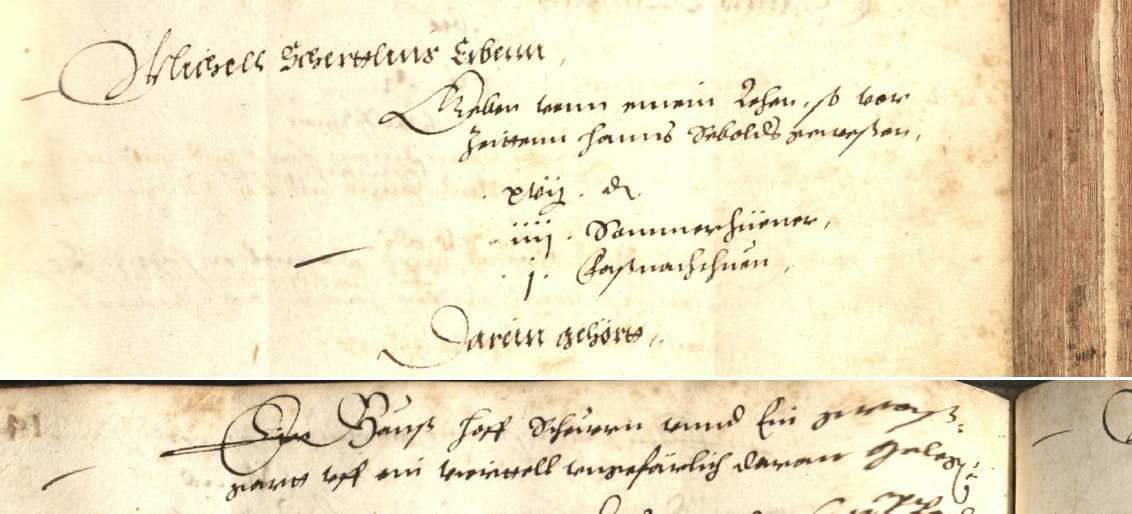 Michell Schertlins Erbenn,
Geben vonn einem Lehen, so vor
Zeittenn Hanns Sebolds gewesen,
. xvij . ₰
. iiij . Sommerhüener,
. j . Faßnachthuen,
Darein gehört,
Ein Hauß Hoff Scheuren vnnd Ein
gartt vff ein viertell vngefärlich daran gelegen